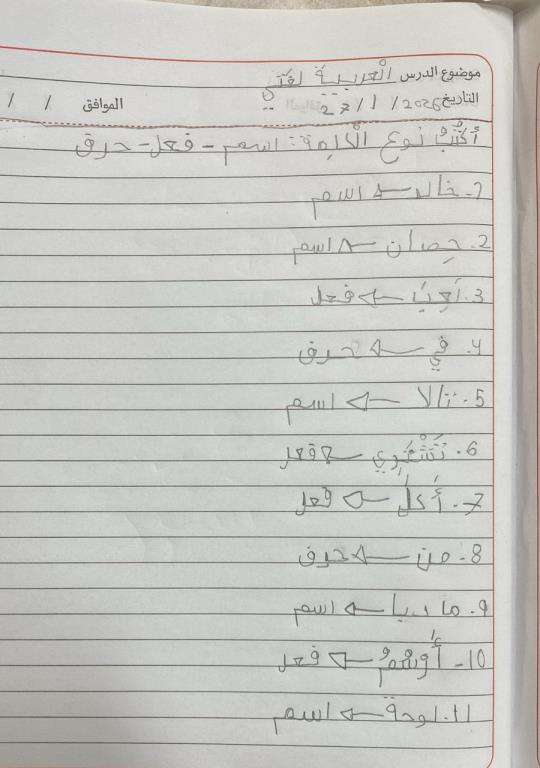 موضوع الدرس العربية لغتي
التاريخ 27/1/2026 الموافق / /
أكتب نوع الكلمة: اسم - فعل - حرف
1. خالد ← اسم
2. حصان ← اسم
3. ← فعل
4. في ← حرف
5. تالا ← اسم
6. تشتري ← فعل
7. أكل ← فعل
8. من ← حرف
9. ماريا ← اسم
10- ← فعل
11. لوحة ← اسم